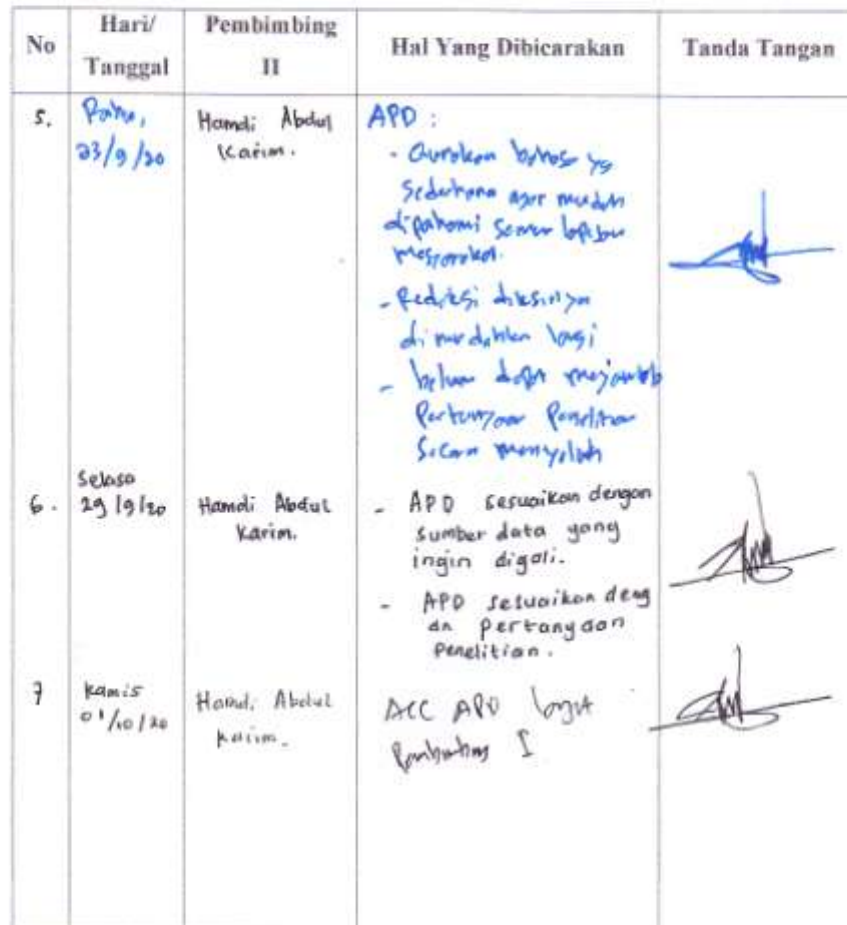 No
Hari/
Tanggal
Pembimbing
II
Hal Yang Dibicarakan
Tanda Tangan
5.
Rabu,
23/9/20
Hamdi Abdul
Karim.
APD :
- Gunakan bahasa yg
sederhana agar mudah
dipahami semua lapisan
masyarakat.
- Redaksi diksinya
dimudahkan lagi
- belum dapat menjawab
Pertanyaan Penelitian
secara menyeluruh
6.
Selasa
29/9/20
Hamdi Abdul
Karim.
- APD sesuaikan dengan
sumber data yang
ingin digali.
- APD sesuaikan deng
an pertanyaan
penelitian.
7
Kamis
01/10/20
Hamdi Abdul
Karim.
ACC APD lanjut
Pembimbing I